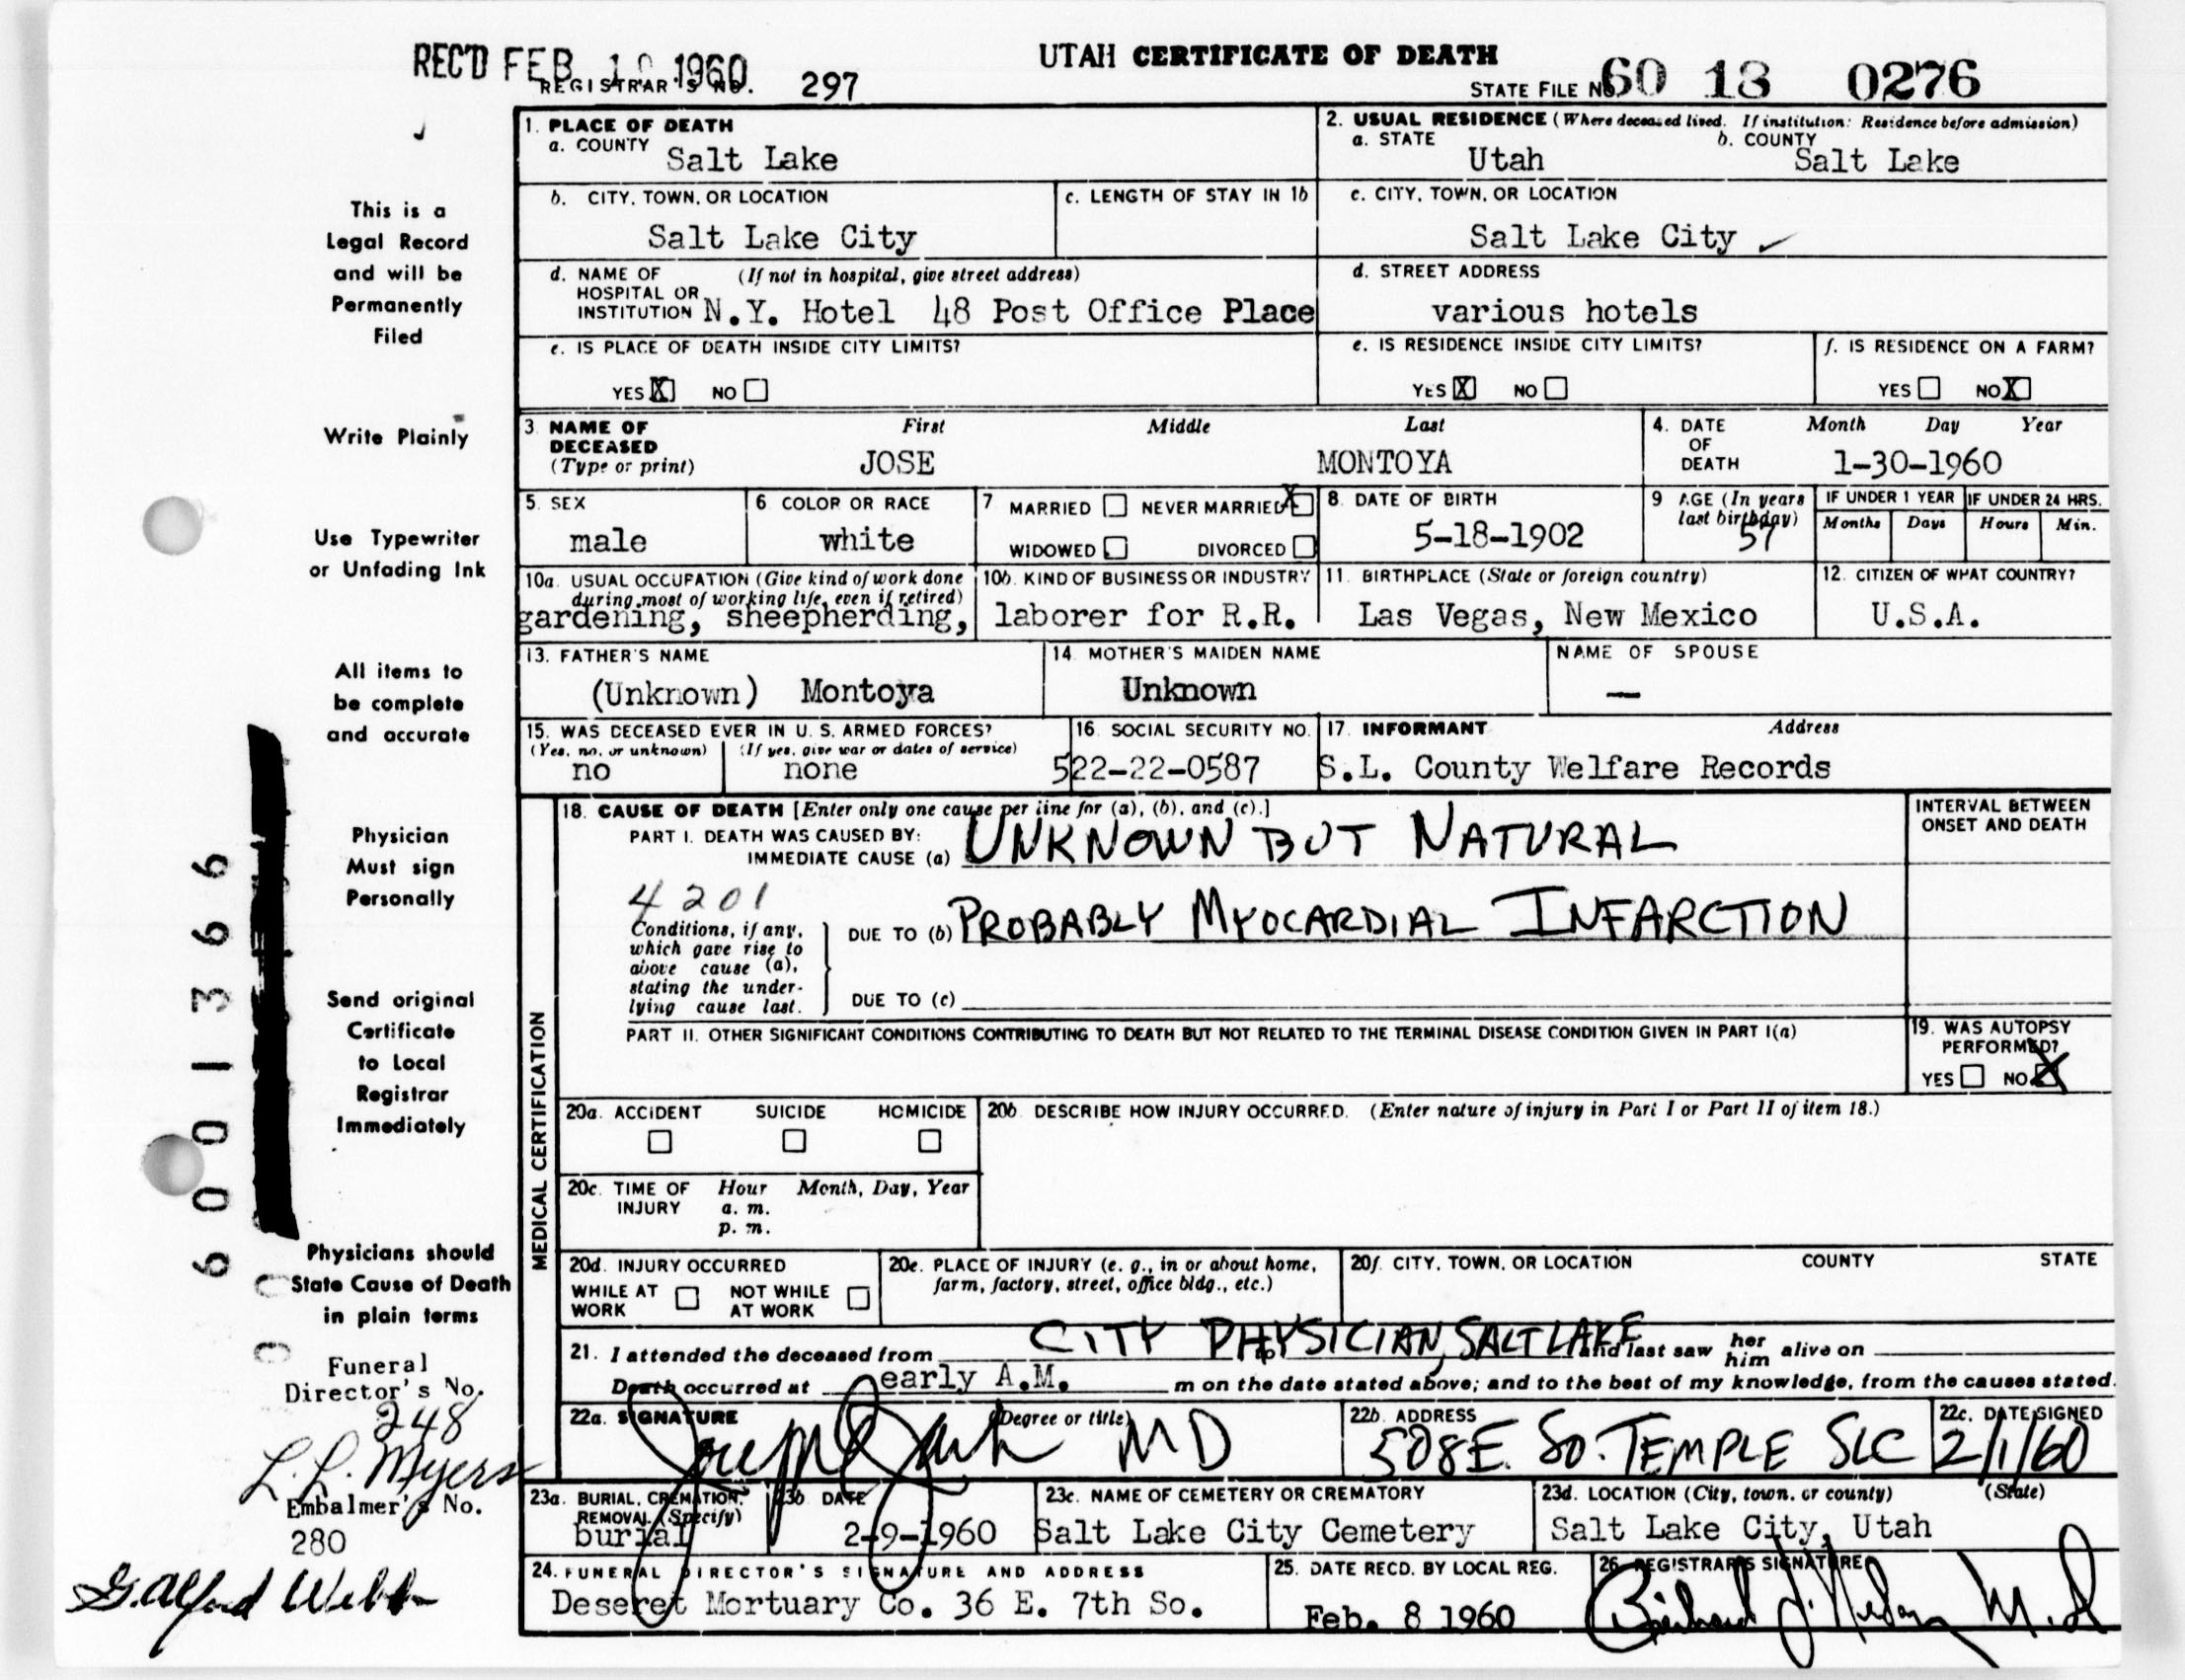 REC'D FEB 10 1960
UTAH CERTIFICATE OF DEATH
REGISTRAR'S NO. 297
STATE FILE NO. 60 18 0276
This is a
Legal Record
and will be
Permanently
Filed
Write Plainly
Use Typewriter
or Unfading Ink
All items to
be complete
and accurate
Physician
Must sign
Personally
Send original
Certificate
to Local
Registrar
Immediately
Physicians should
State Cause of Death
in plain terms
Funeral
Director's No.
248
L. L. Myers
Embalmer's No.
280
G. Alford Webb
6001366
1. PLACE OF DEATH
a. COUNTY Salt Lake
2. USUAL RESIDENCE (Where deceased lived. If institution: Residence before admission)
a. STATE Utah b. COUNTY Salt Lake
b. CITY, TOWN, OR LOCATION
Salt Lake City
c. LENGTH OF STAY IN 1b
c. CITY, TOWN, OR LOCATION
Salt Lake City
d. NAME OF (If not in hospital, give street address)
HOSPITAL OR
INSTITUTION N.Y. Hotel 48 Post Office Place
d. STREET ADDRESS
various hotels
e. IS PLACE OF DEATH INSIDE CITY LIMITS?
YES X NO
e. IS RESIDENCE INSIDE CITY LIMITS?
YES X NO
f. IS RESIDENCE ON A FARM?
YES NO X
3. NAME OF DECEASED
(Type or print)
First Middle Last
JOSE MONTOYA
4. DATE OF DEATH
Month Day Year
1-30-1960
5. SEX
male
6. COLOR OR RACE
white
7 MARRIED NEVER MARRIED X
WIDOWED DIVORCED
8. DATE OF BIRTH
5-18-1902
9 AGE (In years
last birthday)
57
IF UNDER 1 YEAR IF UNDER 24 HRS.
Months Days Hours Min.
10a. USUAL OCCUPATION (Give kind of work done
during most of working life, even if retired)
gardening, sheepherding,
10b. KIND OF BUSINESS OR INDUSTRY
laborer for R.R.
11. BIRTHPLACE (State or foreign country)
Las Vegas, New Mexico
12. CITIZEN OF WHAT COUNTRY?
U.S.A.
13. FATHER'S NAME
(Unknown) Montoya
14. MOTHER'S MAIDEN NAME
Unknown
NAME OF SPOUSE
—
15. WAS DECEASED EVER IN U. S. ARMED FORCES?
(Yes, no, or unknown) (If yes, give war or dates of service)
no none
16. SOCIAL SECURITY NO.
522-22-0587
17. INFORMANT Address
S.L. County Welfare Records
MEDICAL CERTIFICATION
18. CAUSE OF DEATH [Enter only one cause per line for (a), (b), and (c).]
PART I. DEATH WAS CAUSED BY:
IMMEDIATE CAUSE (a) UNKNOWN BUT NATURAL
INTERVAL BETWEEN
ONSET AND DEATH
4201
Conditions, if any,
which gave rise to
above cause (a),
stating the under-
lying cause last.
DUE TO (b) PROBABLY MYOCARDIAL INFARCTION
DUE TO (c)
PART II. OTHER SIGNIFICANT CONDITIONS CONTRIBUTING TO DEATH BUT NOT RELATED TO THE TERMINAL DISEASE CONDITION GIVEN IN PART I(a)
19. WAS AUTOPSY
PERFORMED?
YES NO X
20a. ACCIDENT SUICIDE HOMICIDE
20b DESCRIBE HOW INJURY OCCURRED. (Enter nature of injury in Part I or Part II of item 18.)
20c. TIME OF Hour Month, Day, Year
INJURY a. m.
p. m.
20d. INJURY OCCURRED
WHILE AT NOT WHILE
WORK AT WORK
20e. PLACE OF INJURY (e. g., in or about home,
farm, factory, street, office bldg., etc.)
20f. CITY, TOWN, OR LOCATION COUNTY STATE
CITY PHYSICIAN, SALT LAKE
21. I attended the deceased from to and last saw her him alive on
Death occurred at early A.M. m on the date stated above; and to the best of my knowledge, from the causes stated.
22a. SIGNATURE (Degree or title)
MD
22b. ADDRESS
508 E. So. TEMPLE SLC
22c. DATE SIGNED
2/1/60
23a. BURIAL, CREMATION,
REMOVAL (Specify)
burial
23b DATE
2-9-1960
23c. NAME OF CEMETERY OR CREMATORY
Salt Lake City Cemetery
23d. LOCATION (City, town, or county) (State)
Salt Lake City, Utah
24. FUNERAL DIRECTOR'S SIGNATURE AND ADDRESS
Deseret Mortuary Co. 36 E. 7th So.
25. DATE RECD. BY LOCAL REG.
Feb. 8 1960
26 REGISTRAR'S SIGNATURE
M.D